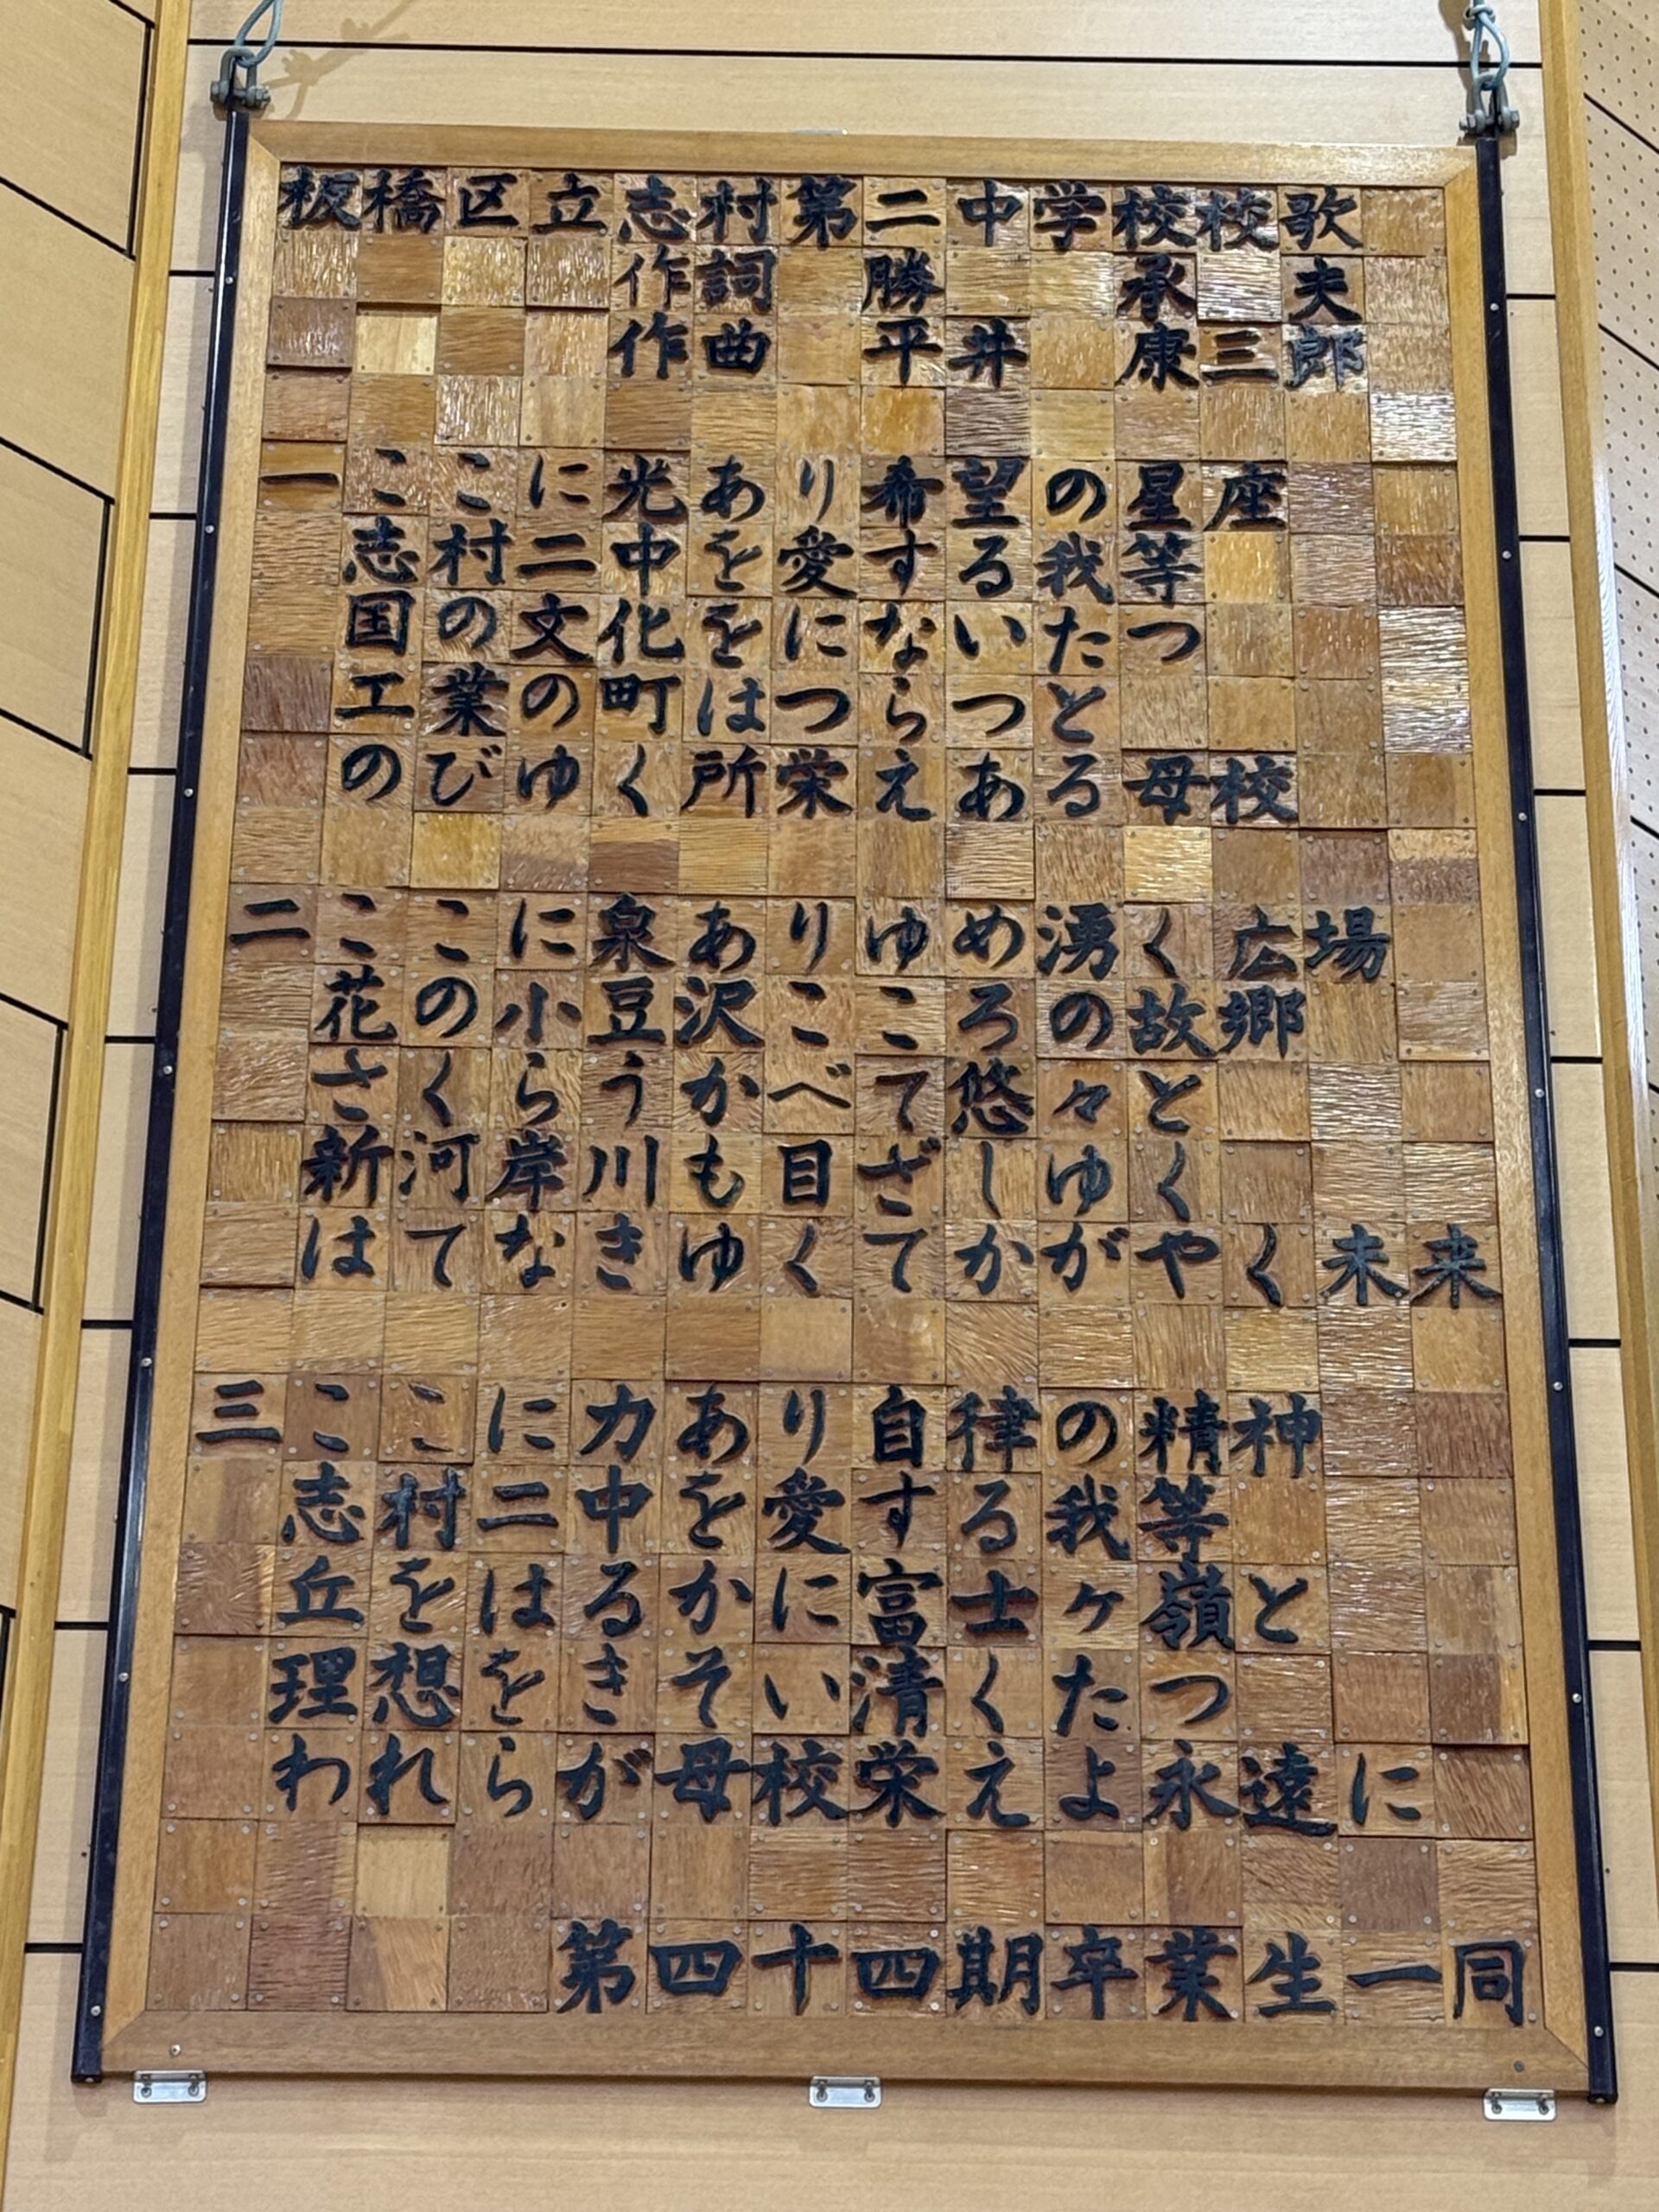 板橋区立志村第二中学校校歌
作詞 勝 承夫
作曲 平井 康三郎
一 ここに光あり希望の星座
志村二中を愛する我等
国の文化をになイたつ
工業の町はつらつと
のびゆく所栄えある母校
二 ここに泉ありゆめ湧く広場
花の小豆沢こころの故郷
さくらうかべて悠々と
新河岸川も目ざしゆく
はてなきゆくてかがやく未来
三 ここに力あり自律の精神
志村二中を愛する我等
丘をはるかに富士ケ嶺と
理想をきそい清くたつ
われらが母校栄えよ永遠に
第四十四期卒業生一同